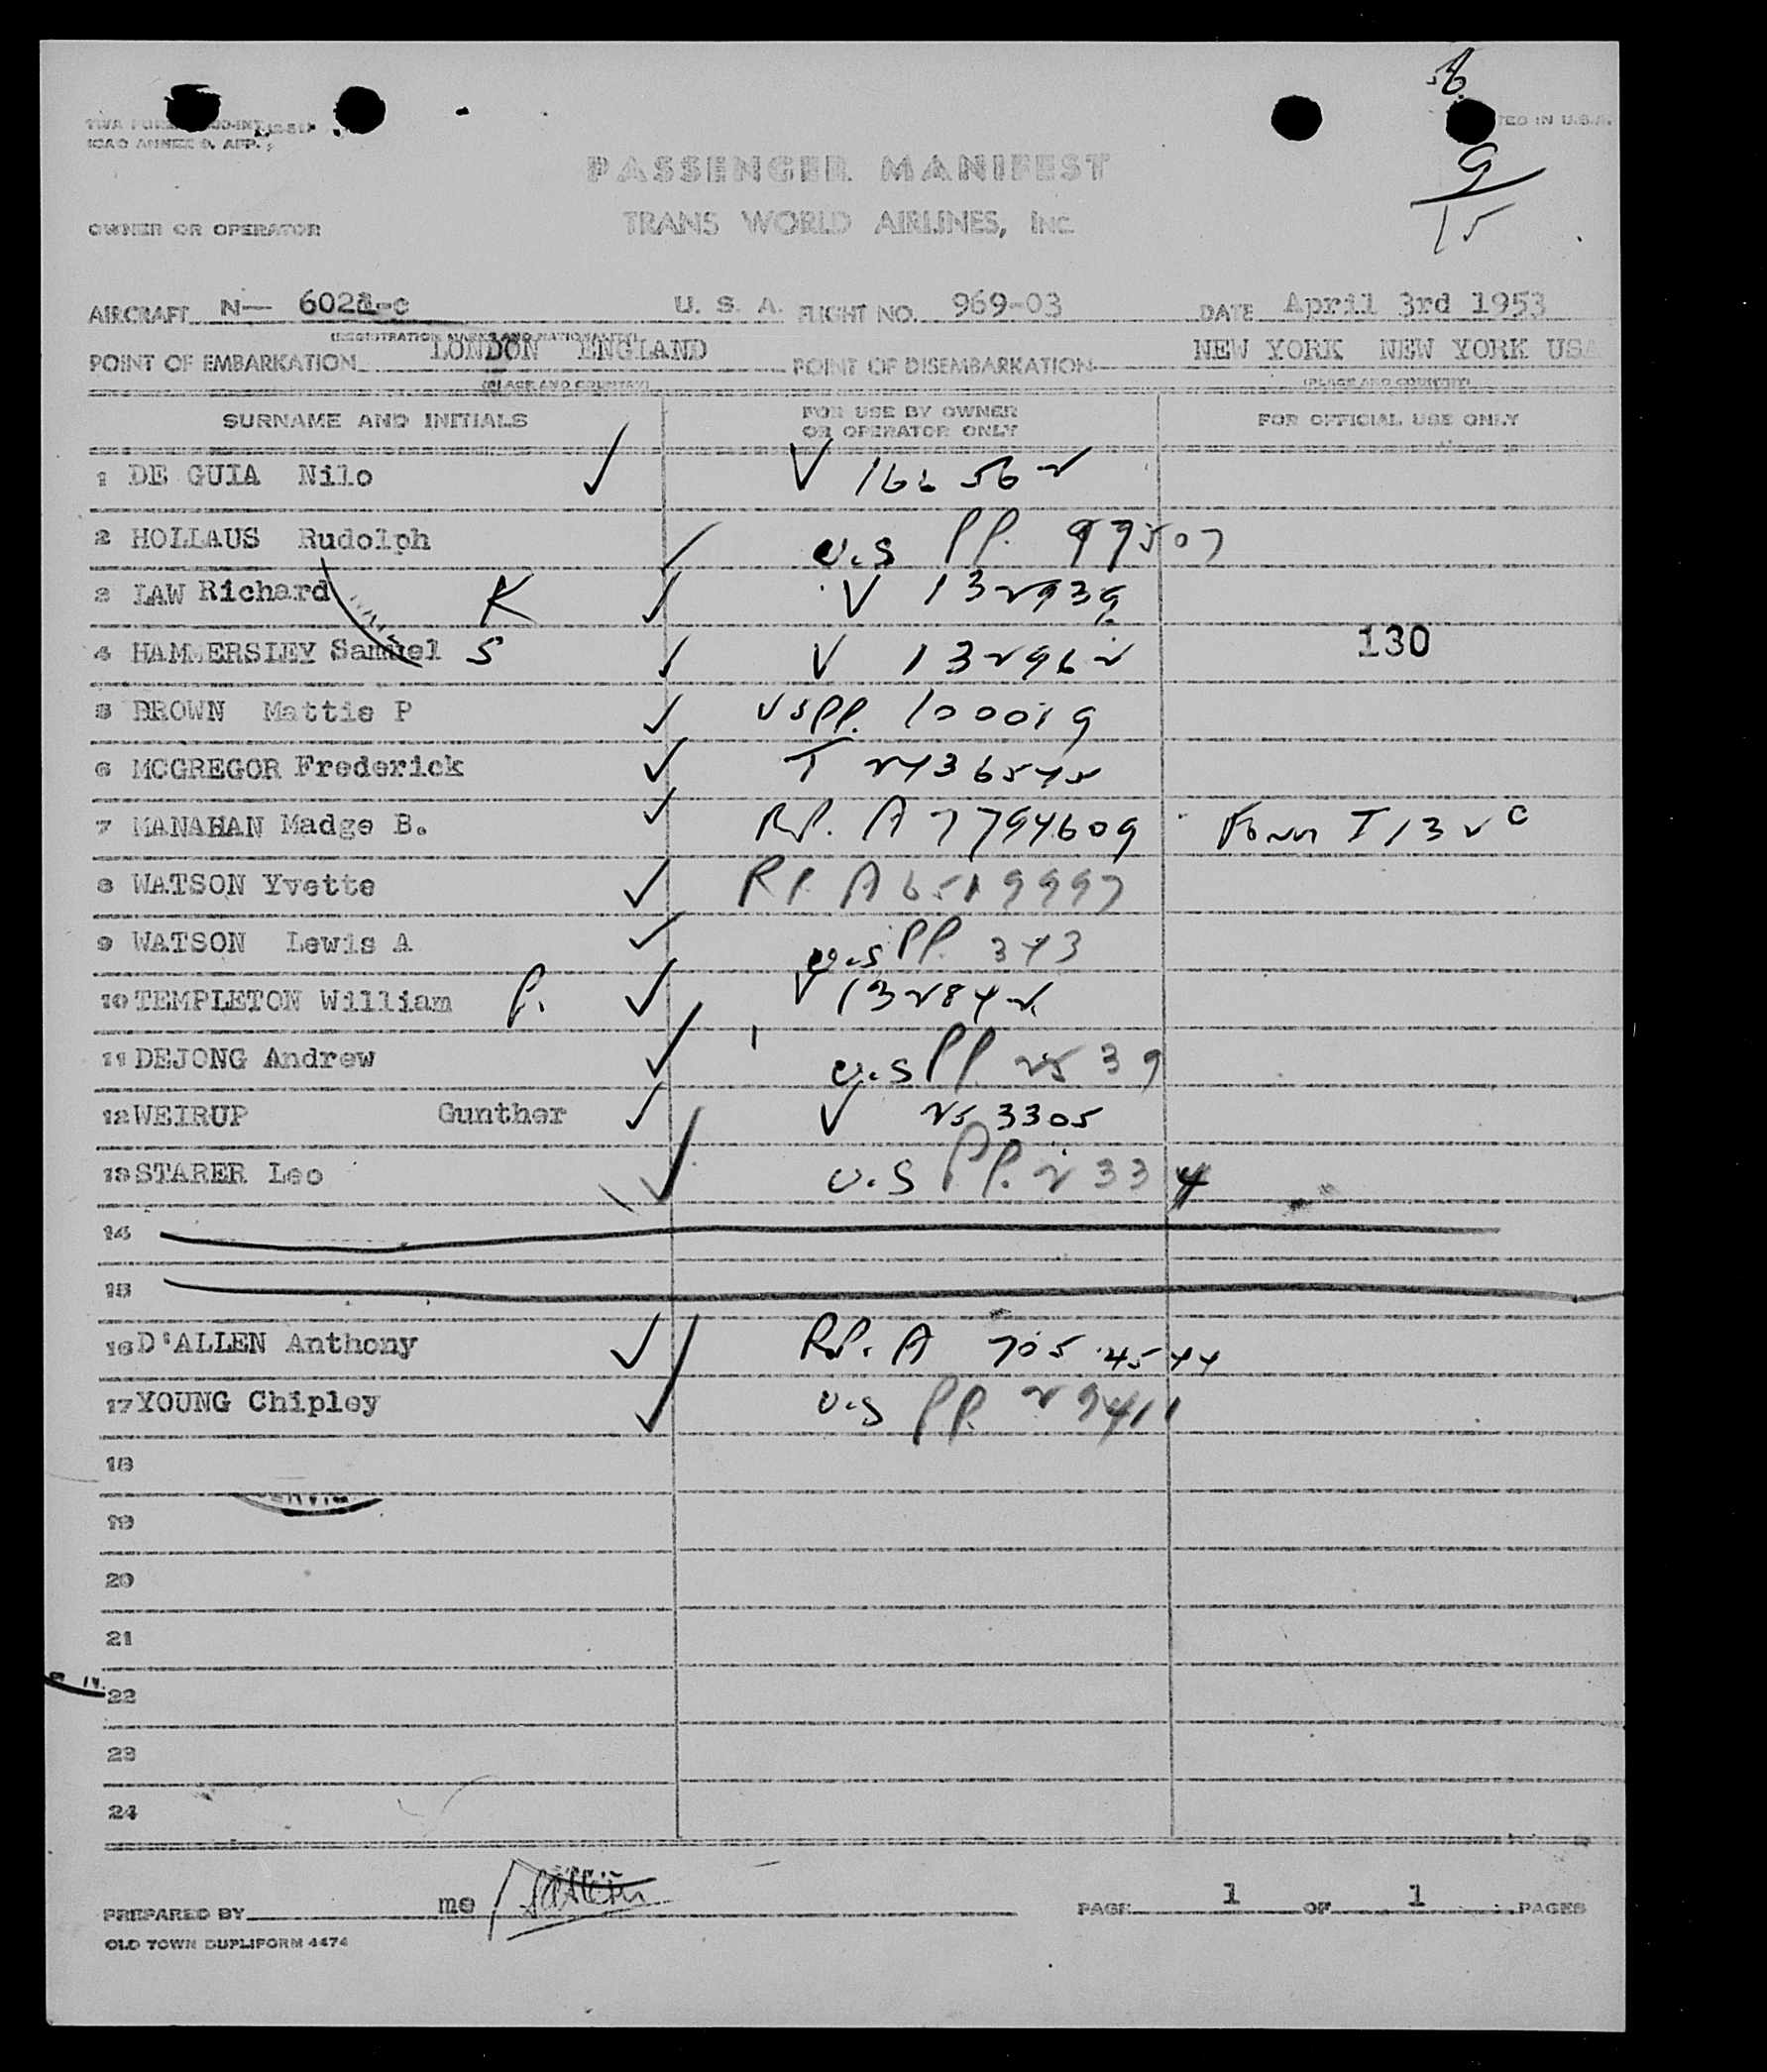 ICAO ANNEX 9. APP.
PASSENGER MANIFEST
TRANS WORLD AIRLINES, INC
OWNER OR OPERATOR
9
15
AIRCRAFT N— U. S. A. FLIGHT NO. 969-03 DATE April 3rd 1953
(REGISTRATION MARKS AND NATIONALITY)
POINT OF EMBARKATION LONDON ENGLAND POINT OF DISEMBARKATION NEW YORK NEW YORK USA
(PLACE AND COUNTRY) (PLACE AND COUNTRY)
SURNAME AND INITIALS FOR USE BY OWNER OR OPERATOR ONLY FOR OFFICIAL USE ONLY
1 DE GUIA Nilo ✓ V 166562
2 HOLLAUS Rudolph ✓ U.S PP. 99507
3 LAW Richard K ✓ V 132939
4 HAMMERSLEY Samuel S ✓ V 132962 130
5 BROWN Mattie P ✓ USPP. 100019
6 MCGREGOR Frederick ✓ T 2436545
7 MANAHAN Madge B. ✓ RP. A 7794609 Form I 132 c
8 WATSON Yvette ✓ RP. A 6519997
9 WATSON Lewis A ✓ U.S PP. 343
10 TEMPLETON William P. ✓ V 132842
11 DEJONG Andrew ✓ U.S PP. 2539
12 WEIRUP Gunther ✓ V 253305
13 STARER Leo ✓ U.S PP. 2334
14
15
16 D'ALLEN Anthony ✓ RP. A 705 4544
17 YOUNG Chipley ✓ U.S PP. 29411
18
19
20
21
22
23
24
PREPARED BY me PAGE 1 OF 1 PAGES
OLD TOWN DUPLIFORM 4474